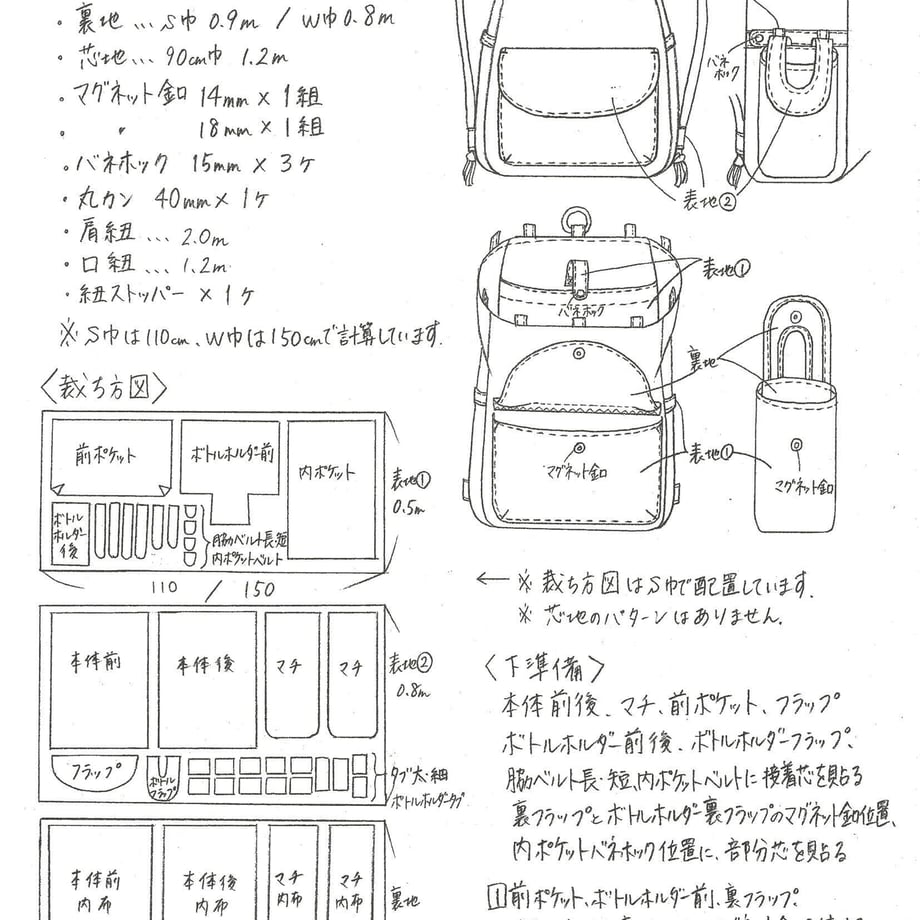 ・裏地…S巾 0.9m / W巾0.8m
・芯地…90cm巾 1.2m
・マグネット釦 14mm×1組
・ 〃 18mm×1組
・バネホック 15mm×3ケ
・丸カン 40mm×1ケ
・肩紐…2.0m
・口紐…1.2m
・紐ストッパー×1ケ
※S巾は110cm、W巾は150cmで計算しています.
〈裁ち方図〉
前ポケット
ボトルホルダー前
内ポケット
表地①
0.5m
ボトル
ホルダー
後
脇ベルト長・短
内ポケットベルト
110 / 150
本体前
本体後
マチ
マチ
表地②
0.8m
フラップ
ボトル
フラップ
タブ太・細
ボトルホルダータブ
本体前
内布
本体後
内布
マチ
内布
マチ
内布
裏地
バネ
ホック
表地②
表地①
バネホック
裏地
マグネット釦
表地①
マグネット釦
←※裁ち方図はS巾で配置しています.
※芯地のパターンはありません.
〈下準備〉
本体前後、マチ、前ポケット、フラップ
ボトルホルダー前後、ボトルホルダーフラップ、
脇ベルト長・短、内ポケットベルトに接着芯を貼る
裏フラップとボトルホルダー裏フラップのマグネット釦位置、
内ポケットバネホック位置に、部分芯を貼る
1前ポケット、ボトルホルダー前、裏フラップ、